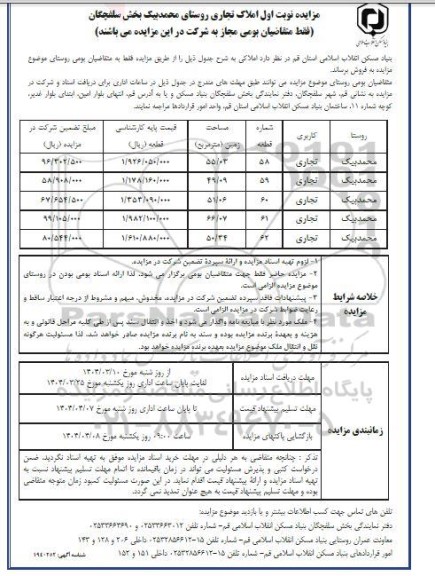 مزایده نوبت اول املاک تجاری روستای محمدبیک بخش سلفچگان
(فقط متقاضیان بومی مجاز به شرکت در این مزایده می باشند)
بنیاد مسکن انقلاب اسلامی استان قم در نظر دارد املاکی به شرح جدول ذیل را از طریق مزایده فقط به متقاضیان بومی روستای موضوع
مزایده به فروش برساند.
متقاضیان بومی روستای موضوع مزایده می توانند طبق مهلت های مندرج در جدول ذیل در ساعات اداری برای دریافت اسناد و شرکت در
مزایده به نشانی قم، شهر سلفچگان، دفتر نمایندگی بخش سلفچگان بنیاد مسکن و یا به آدرس قم، انتهای بلوار امین، ابتدای بلوار غدیر،
کوچه شماره ۱۱، ساختمان بنیاد مسکن انقلاب اسلامی استان قم، واحد امور قراردادها مراجعه نمایند.
روستا کاربری شماره قطعه مساحت زمین (مترمربع) قیمت پایه کارشناسی قطعه (ریال) مبلغ تضمین شرکت در مزایده (ریال)
محمدبیک تجاری ۵۸ ۵۵/۰۳ ۱/۹۲۶/۰۵۰/۰۰۰ ۹۶/۳۰۲/۵۰۰
محمدبیک تجاری ۵۹ ۴۹/۰۹ ۱/۱۷۸/۱۶۰/۰۰۰ ۵۸/۹۰۸/۰۰۰
محمدبیک تجاری ۶۰ ۵۱/۰۶ ۱/۳۵۳/۰۹۰/۰۰۰ ۶۷/۶۵۴/۵۰۰
محمدبیک تجاری ۶۱ ۶۶/۰۷ ۱/۹۸۲/۱۰۰/۰۰۰ ۹۹/۱۰۵/۰۰۰
محمدبیک تجاری ۶۲ ۵۰/۳۴ ۱/۶۱۰/۸۸۰/۰۰۰ ۸۰/۵۴۴/۰۰۰
خلاصه شرایط مزایده
۱- لزوم تهیه اسناد مزایده و ارائه سپرده تضمین شرکت در مزایده.
۲- مزایده حاضر فقط جهت متقاضیان بومی برگزار می شود، لذا ارائه اسناد بومی بودن در روستای
موضوع مزایده الزامی است.
۳- پیشنهادات فاقد سپرده تضمین شرکت در مزایده، مخدوش، مبهم و مشروط از درجه اعتبار ساقط و
رعایت ضوابط شرکت در مزایده الزامی است.
۴- ملک مورد نظر با مبایعه نامه واگذار می شود و اخذ و انتقال سند پس از طی کلیه مراحل قانونی و به
هزینه و بعهده برنده مزایده بوده و سند به نام برنده مزایده صادر خواهد شد. لذا مسئولیت هرگونه
نقل و انتقال ملک موضوع مزایده بعهده برنده مزایده خواهد بود.
زمانبندی مزایده
مهلت دریافت اسناد مزایده از روز شنبه مورخ ۱۴۰۴/۰۳/۱۰
لغایت پایان ساعت اداری روز یکشنبه مورخ ۱۴۰۴/۰۳/۲۵
مهلت تسلیم پیشنهاد قیمت تا پایان ساعت اداری روز شنبه مورخ ۱۴۰۴/۰۴/۰۷
بازگشایی پاکتهای مزایده ساعت ۰۹:۰۰ روز یکشنبه مورخ ۱۴۰۴/۰۴/۰۸
تذکر : چنانچه متقاضی به هر دلیلی در مهلت خرید اسناد مزایده موفق به تهیه اسناد نگردید، ضمن
درخواست کتبی و پذیرش مسئولیت می تواند در زمان باقیمانده تا اتمام مهلت تسلیم پیشنهاد نسبت به
تهیه اسناد مزایده و ارائه پیشنهاد قیمت اقدام نماید. در این صورت مسئولیت کمبود زمان متوجه متقاضی
بوده و مهلت تسلیم پیشنهاد قیمت به هیچ عنوان تمدید نمی گردد.
تلفن های تماس جهت کسب اطلاعات بیشتر و یا بازدید موضوع مزایده:
دفتر نمایندگی بخش سلفچگان بنیاد مسکن انقلاب اسلامی قم- شماره تلفن ۰۲۵۳۳۶۶۳۰۱۲ و ۰۲۵۳۳۶۶۳۶۹۰
معاونت عمران روستایی بنیاد مسکن انقلاب اسلامی قم- شماره تلفن ۱۵-۰۲۵۳۲۸۵۶۶۱۲ داخلی ۲۰۶ و ۱۲۸ و ۱۴۳
امور قراردادهای بنیاد مسکن انقلاب اسلامی قم- شماره تلفن ۱۵-۰۲۵۳۲۸۵۶۶۱۲ داخلی ۱۵۱ و ۱۵۲
شناسه آگهی: ۱۹۴۰۲۰۳
ParsNamadData
پایگاه اطلاع رسانی مناقصه و مزایده
۰۲۱-۸۸۳۴۹۶۷۰-۵